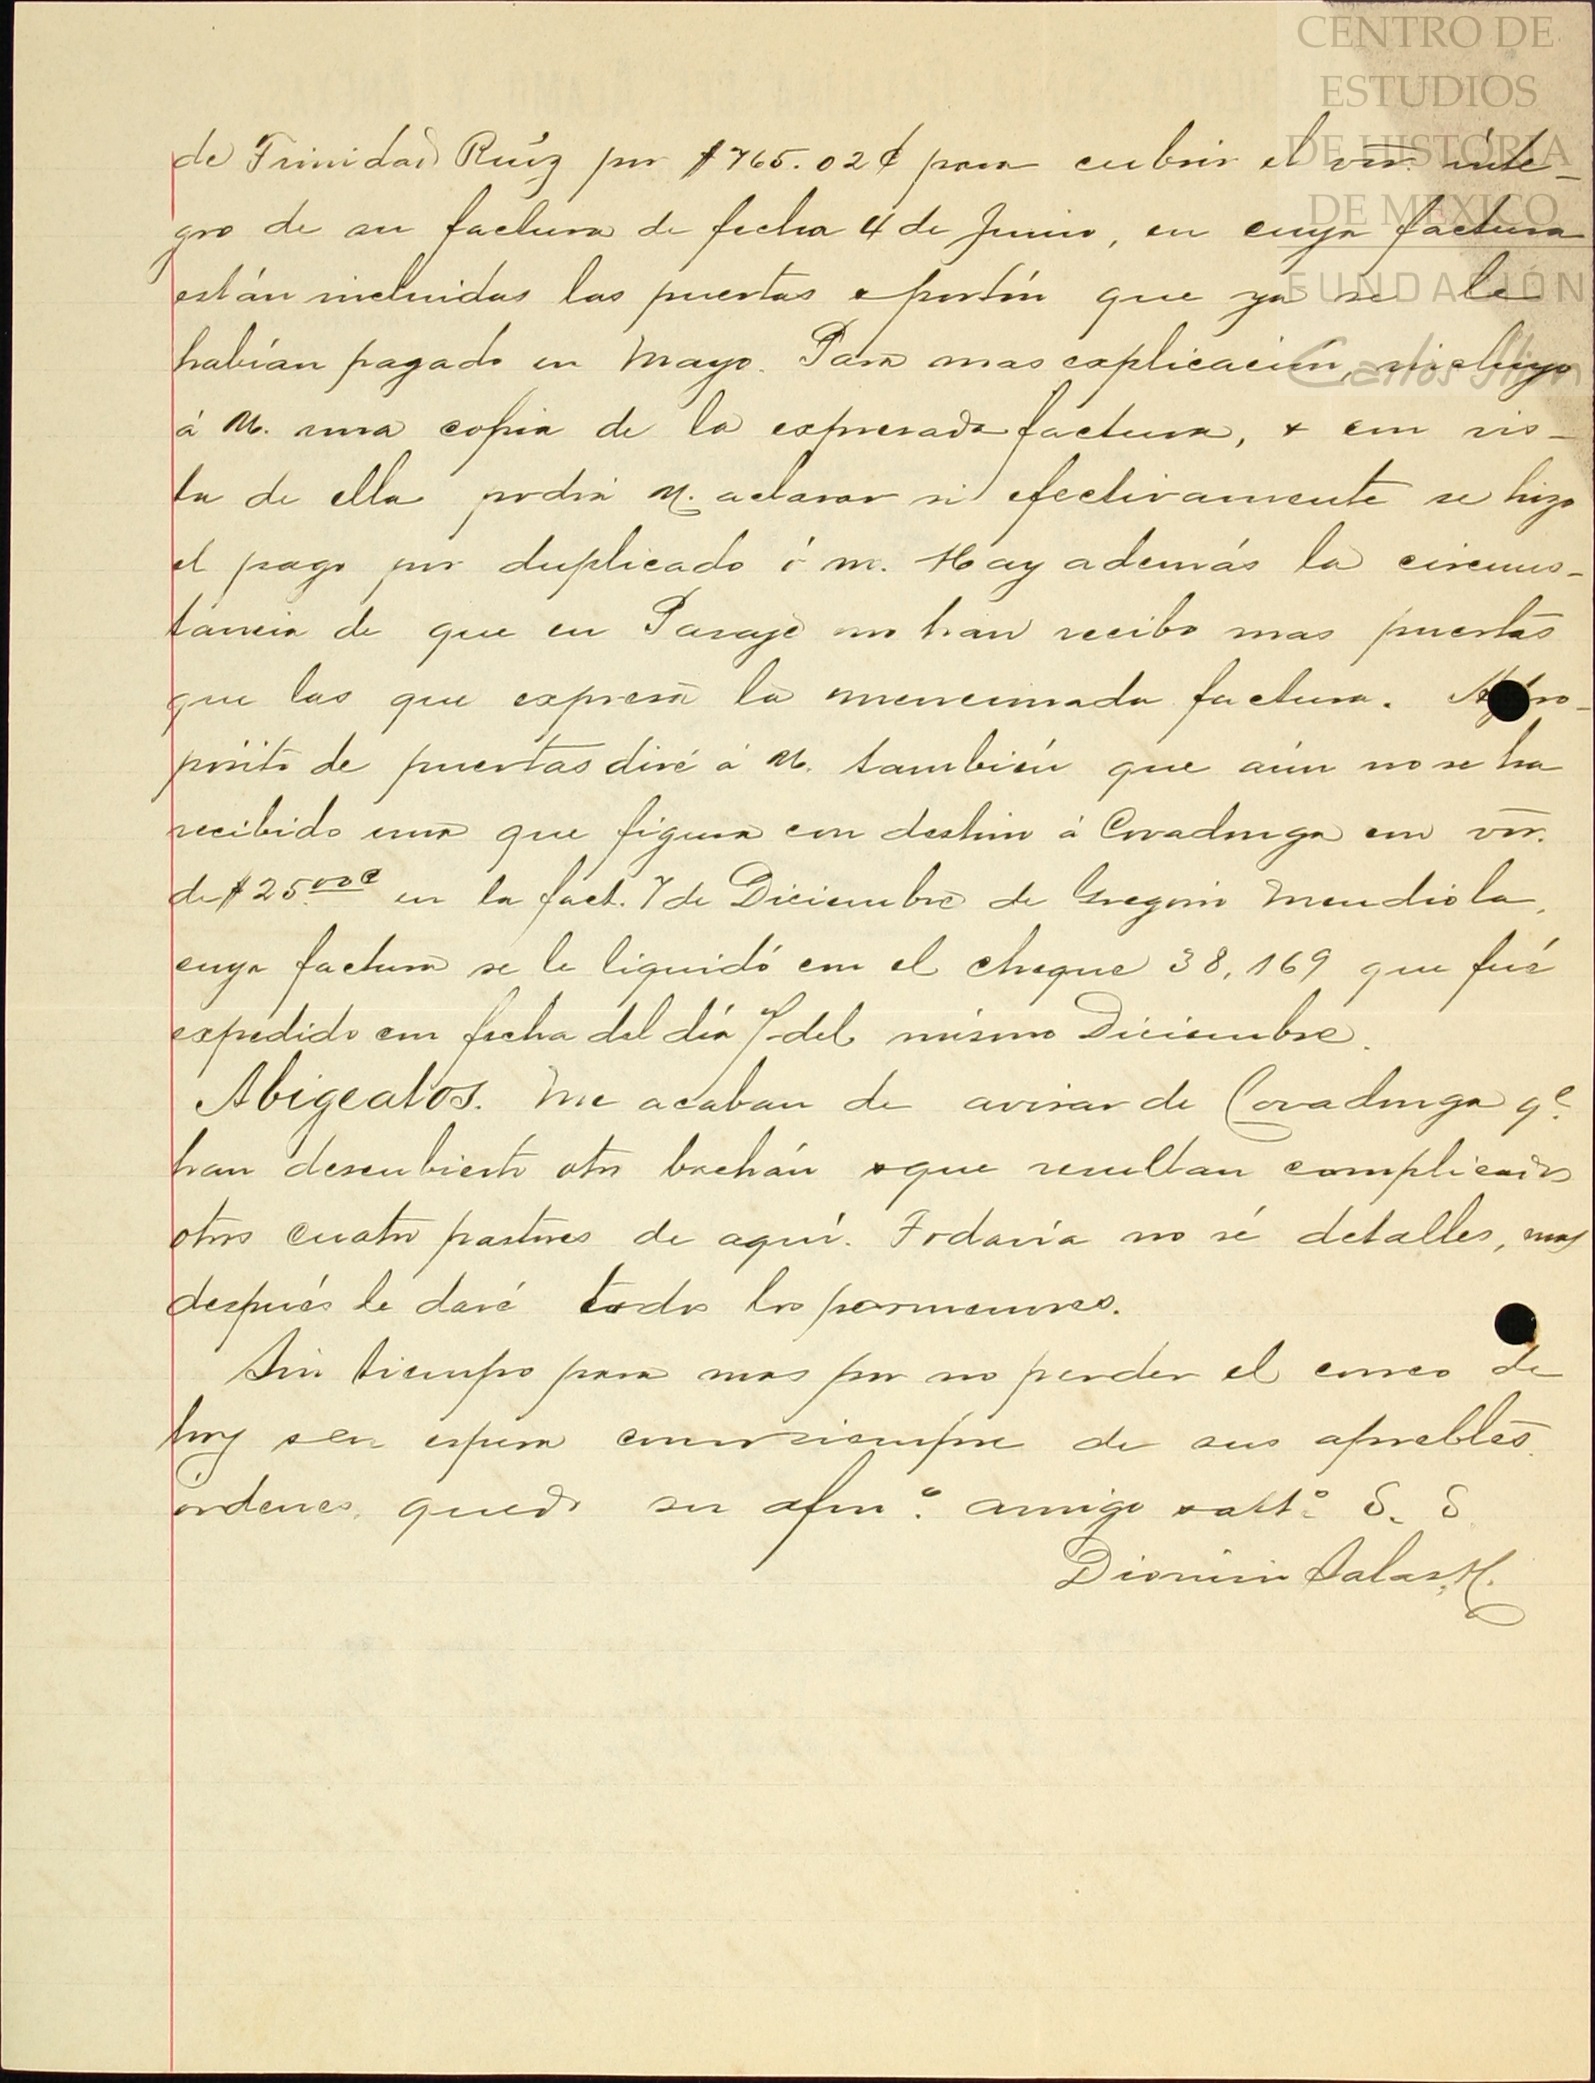 CENTRO DE
ESTUDIOS
DE HISTORIA
DE MEXICO
FUNDACIÓN
Carlos Slim
de Trinidad Ruíz por $765.02¢ para cubrir el vor. ínte-
gro de su factura de fecha 4 de Junio, en cuya factura
están incluidas las puertas & portón que ya se le
habían pagado en Mayo. Para mas explicación, incluyo
á U. una copia de la expresada factura, & con vis-
ta de ella podrá U. aclarar si efectivamente se hizo
el pago por duplicado ó no. Hay además la circuns-
tancia de que en Pasaje no han recibo mas puertas
que las que expresa la mencionada factura. Apro-
pósito de puertas diré á U. también que aún no se ha
recibido una que figura con destino á Covadonga con vor.
de $25.00¢ en la fact. 7 de Diciembre de Gregorio Mendiola,
cuya factura se le liquidó con el cheque 38,169 que fué
expedido con fecha del día 7 del mismo Diciembre.
Abigeatos. Me acaban de avisar de Covadonga qe.
han descubierto otro bochán & que resultan complicados
otros cuatro pastores de aquí. Todavía no sé detalles, mas
después le daré todos los pormenores.
Sin tiempo para mas por no perder el correo de
hoy & en espera como siempre de sus aprebles
órdenes, quedo su afmo. amigo & atto. S. S.
Dionisio Salas H.